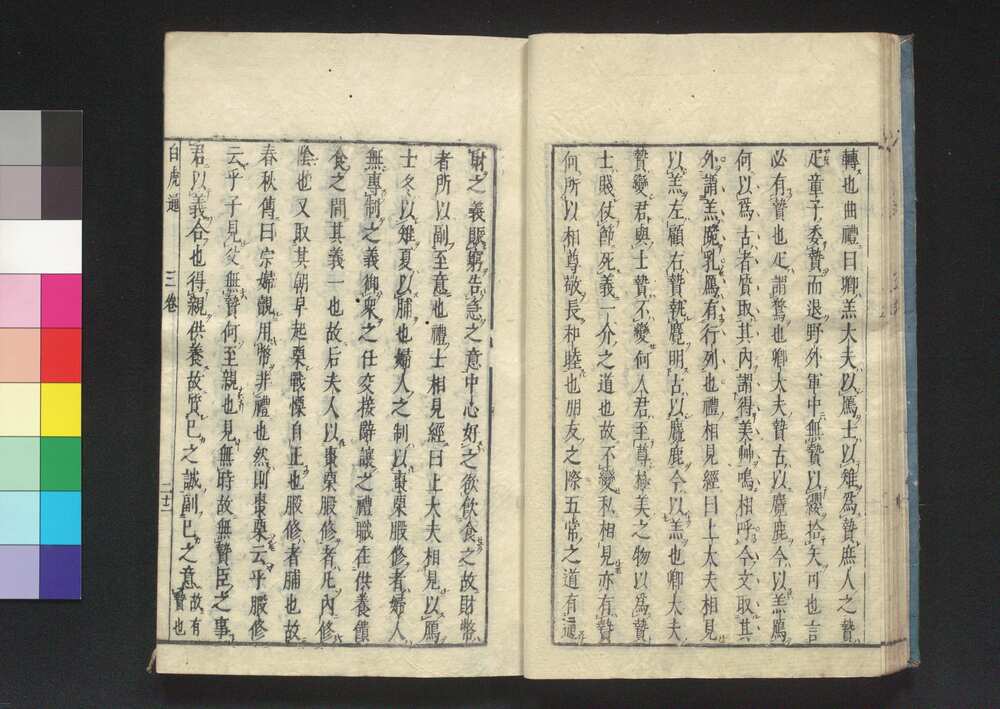 轉也曲禮曰卿羔大夫以鴈士以雉爲贄庶人之贄
疋童子委贄而退野外軍中無贄以纓拾矢可也言
必有贄也疋謂鶩也卿大夫贄古以麑鹿今以羔鴈
何以爲古者質取其內謂得美艸鳴相呼今文取其
外謂羔跪乳鴈有行列也禮相見經曰上大夫相見
以羔左顧右贄執麑明古以麑鹿今以羔也卿大夫
贄變君與士贄不變何人君至尊極美之物以爲贄
士賤仗節死義一介之道也故不變私相見亦有贄
何所以相尊敬長和睦也朋友之際五常之道有通
財之義賑窮告急之意中心好之欲飲食之故財幣
者所以副至意也禮士相見經曰上大夫相見以鴈
士冬以雉夏以脯也婦人之制以棗栗腶修者婦人
無專制之義御衆之任交接辭讓之禮職在供養饋
食之間其義一也故后夫人以棗栗腶修者凡內修
陰也又取其朝早起栗戰慄自正也腶修者脯也故
春秋傳曰宗婦覿用幣非禮也然則棗栗云乎腶修
云乎子見父無贄何至親也見無時故無贄臣之事
君以義合也得親供養故質己之誠副己之意故有贄也
白虎通 三卷 二十二